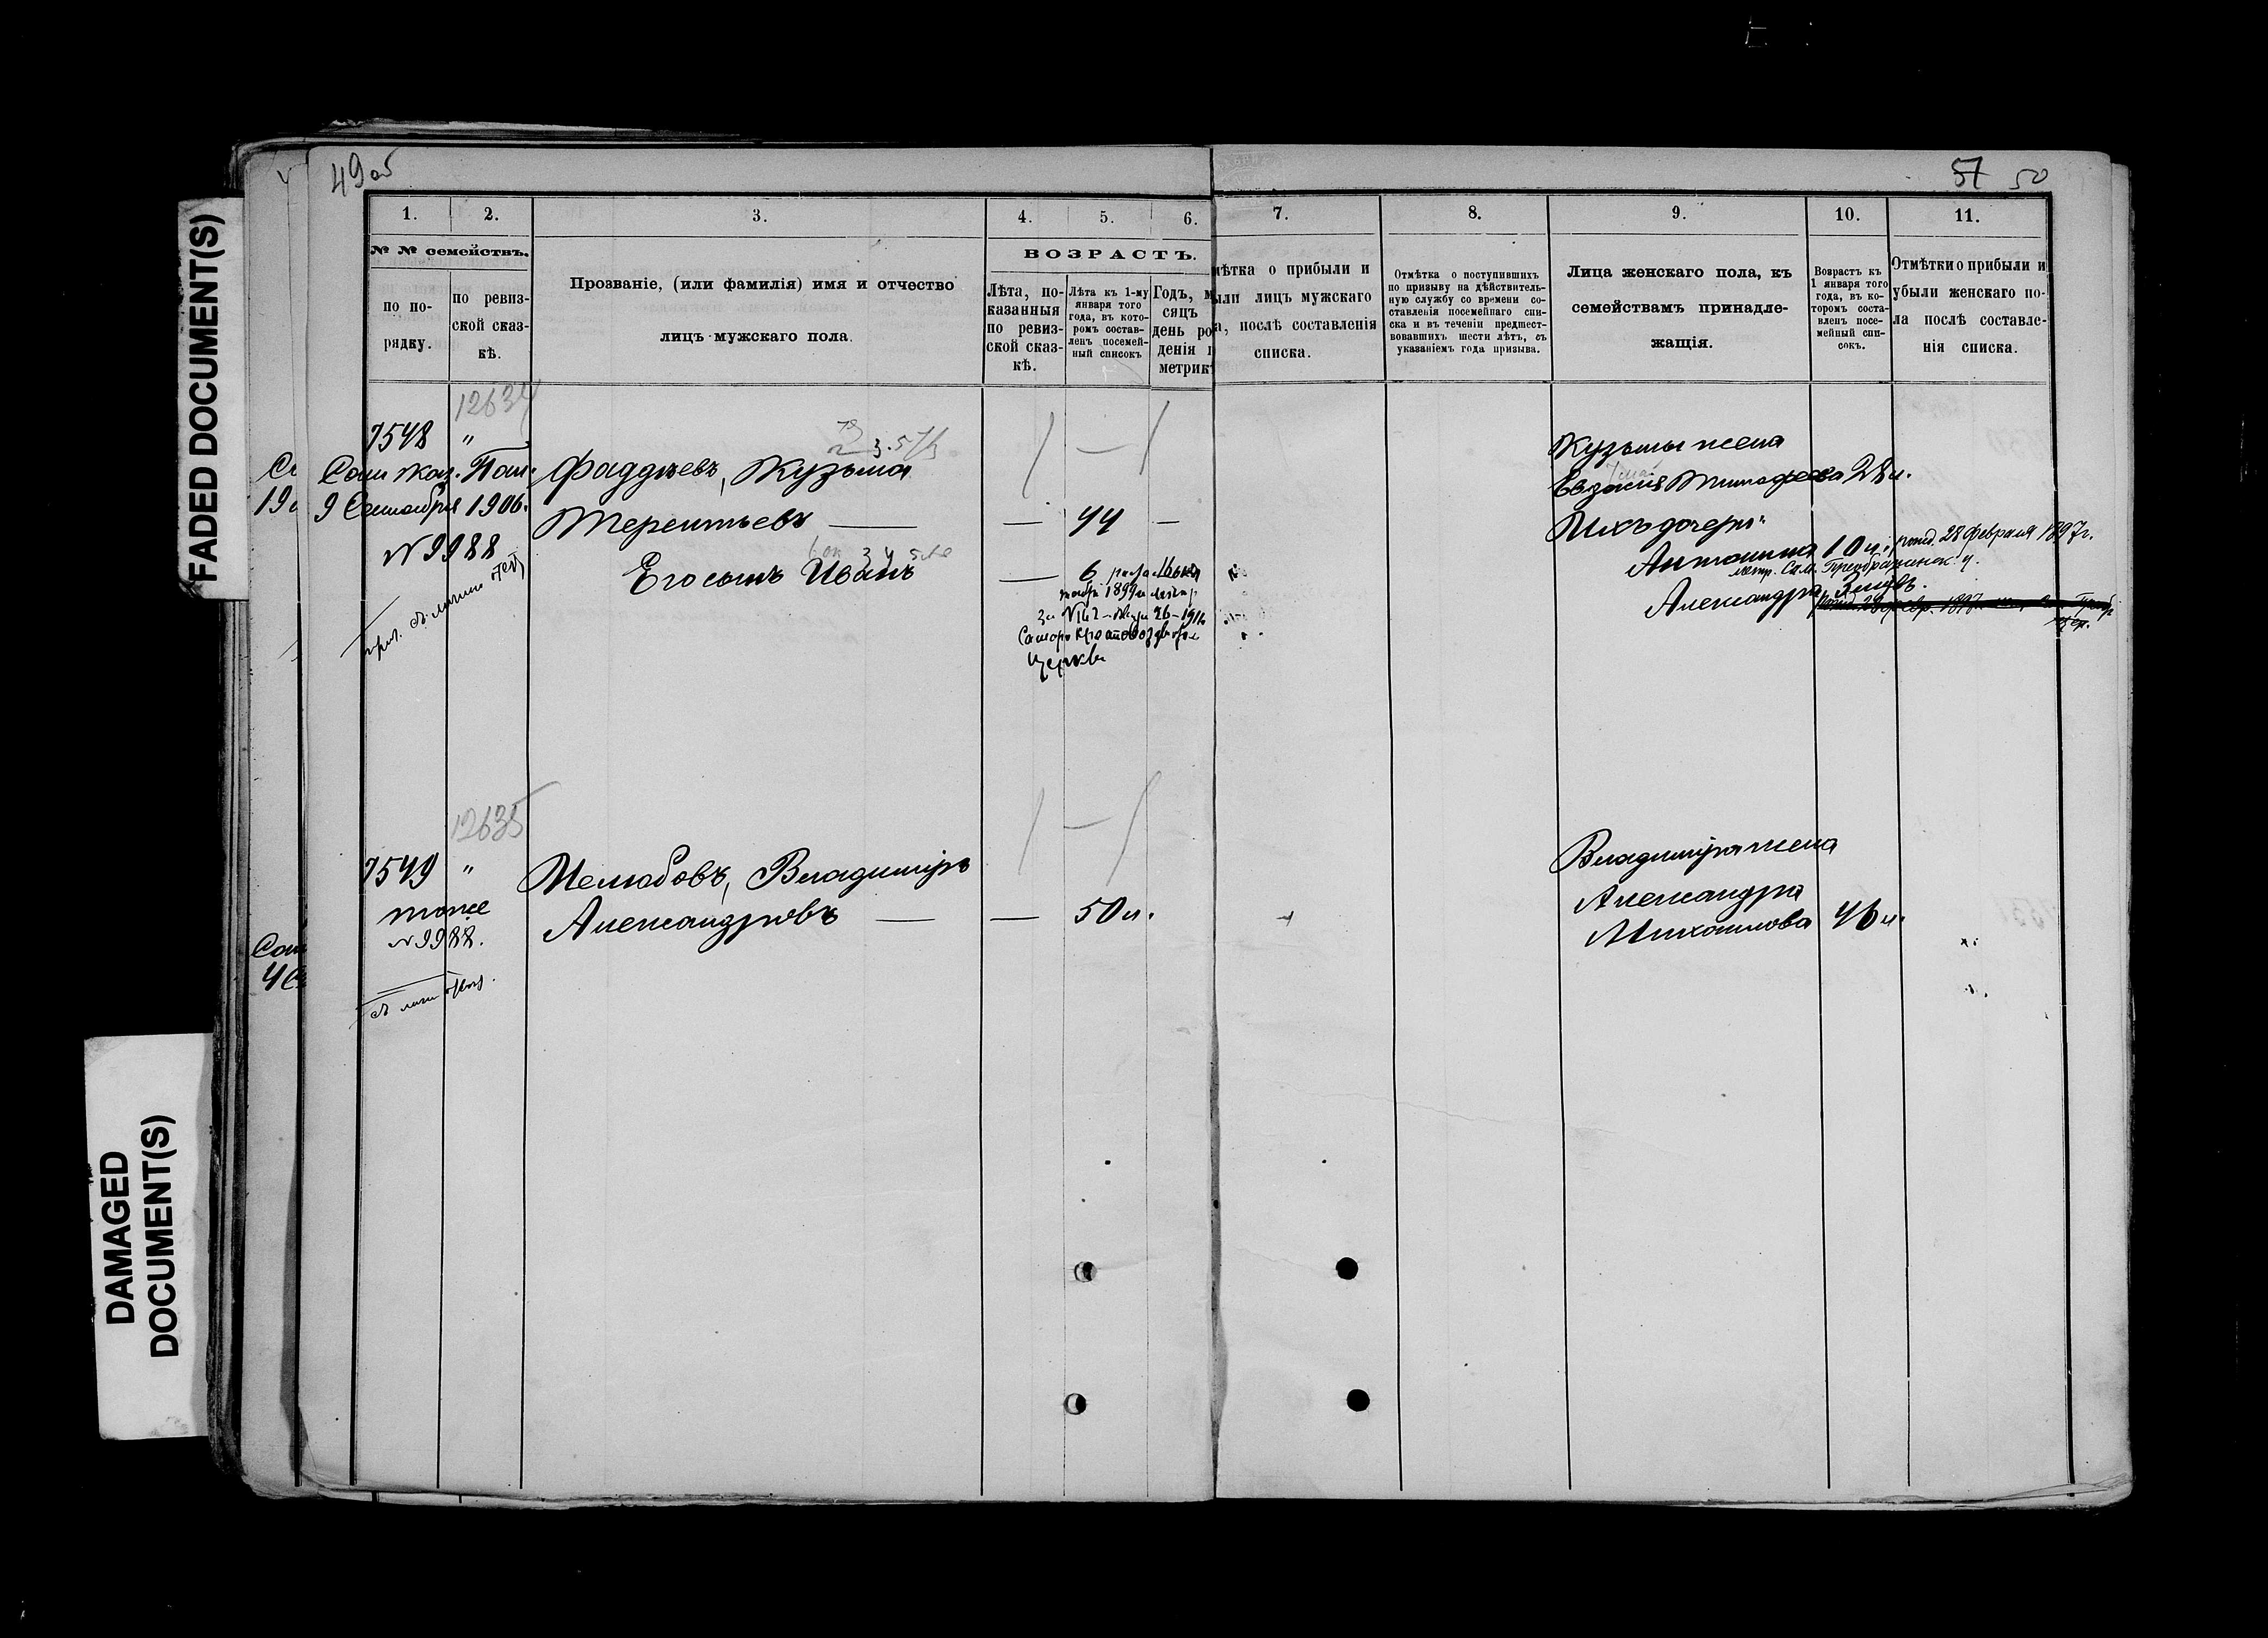 FADED DOCUMENT(S)
DAMAGED
DOCUMENT(S)
49 об
57 50
1. 2. 3. 4. 5. 6. 7. 8. 9. 10. 11.
№ № семействъ.
по по-
рядку.
по ревиз-
ской сказ-
кѣ.
Прозваніе, (или фамилія) имя и отчество
лицъ мужскаго пола.
ВОЗРАСТЪ.
Лѣта, по-
казанныя
по ревиз-
ской сказ-
кѣ.
Лѣта къ 1-му
января того
года, въ кото-
ромъ состав-
ленъ посемей-
ный списокъ
Годъ, м
сяцъ
день ро
денія п
метрик
мѣтка о прибыли и
ыли лицъ мужскаго
а, послѣ составленія
списка.
Отмѣтка о поступившихъ
по призыву на дѣйствитель-
ную службу со времени со-
ставленія посемейнаго спи-
ска и въ теченіи предшест-
вовавшихъ шести лѣтъ, съ
указаніемъ года призыва.
Лица женскаго пола, къ
семействамъ принадле-
жащія.
Возрастъ къ
1 января того
года, въ ко-
торомъ соста-
вленъ посе-
мейный спи-
сокъ.
Отмѣтки о прибыли и
убыли женскаго по-
ла послѣ составле-
нія списка.
12634
7548 "
Сам. Каз. Пал.
9 Сентября 1906.
N 9988
Фаддѣевъ, Кузьма
Терентьевъ — — 44 —
Его сынъ Иванъ — 6
1899
Церкви
Кузьмы жена
Евдокія Тимофеева 28 л.
Ихъ дочери:
Антонина 10 л. рожд. 28 Февраля 1897 г.
метр. Сам. Преображенск. ц.
Александра
12635
7549 "
тоже
N 9988.
Мелюбовъ, Владиміръ
Александровъ — — 50 л.
Владиміра жена
Александра
Михаилова 46 л.